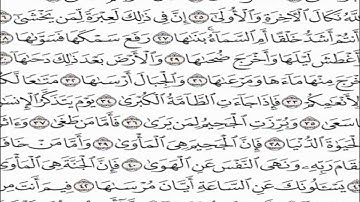 ٱللَّهُ نَكَالَ ٱلْأَخِرَةِ وَٱلْأُولَىٰٓ ٢٥ إِنَّ فِى ذَٰلِكَ لَعِبْرَةً لِّمَن يَخْشَىٰٓ
ءَأَنتُمْ أَشَدُّ خَلْقًا أَمِ ٱلسَّمَآءُ بَنَىٰهَا ٢٧ رَفَعَ سَمْكَهَا فَسَوَّىٰهَا
وَأَغْطَشَ لَيْلَهَا وَأَخْرَجَ ضُحَىٰهَا ٢٩ وَٱلْأَرْضَ بَعْدَ ذَٰلِكَ دَحَىٰهَآ
أَخْرَجَ مِنْهَا مَآءَهَا وَمَرْعَىٰهَا ٣١ وَٱلْجِبَالَ أَرْسَىٰهَا ٣٢ مَتَٰعًا
وَلِأَنْعَٰمِكُمْ ٣٣ فَإِذَا جَآءَتِ ٱلطَّآمَّةُ ٱلْكُبْرَىٰ ٣٤ يَوْمَ يَتَذَكَّرُ ٱلْإِنسَٰنُ
سَعَىٰ ٣٥ وَبُرِّزَتِ ٱلْجَحِيمُ لِمَن يَرَىٰ ٣٦ فَأَمَّا مَن طَغَىٰ ٣٧
ٱلْحَيَوٰةَ ٱلدُّنْيَا ٣٨ فَإِنَّ ٱلْجَحِيمَ هِىَ ٱلْمَأْوَىٰ ٣٩ وَأَمَّا مَنْ خَافَ
مَقَامَ رَبِّهِۦ وَنَهَى ٱلنَّفْسَ عَنِ ٱلْهَوَىٰ ٤٠ فَإِنَّ ٱلْجَنَّةَ هِىَ ٱلْمَأْوَىٰ
يَسْـَٔلُونَكَ عَنِ ٱلسَّاعَةِ أَيَّانَ مُرْسَىٰهَا ٤٢ فِيمَ أَنتَ مِن